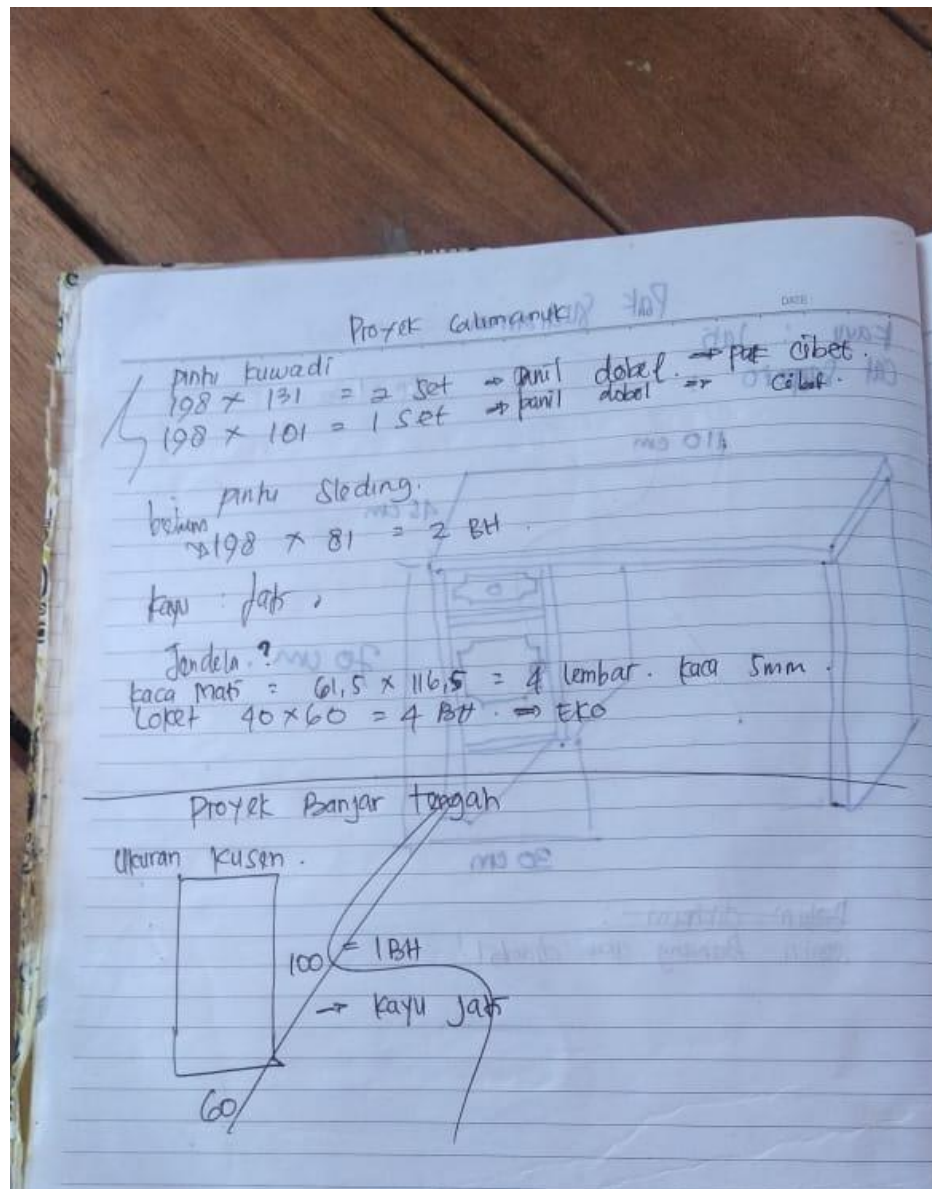 DATE
Proyek Calimanuk
pintu kuwadi
198 x 131 = 2 set → panil dobel. → pak cibet.
198 x 101 = 1 set → panil dobol → Cibet.
pintu Sleding.
belum
→ 198 x 81 = 2 BH.
kayu : Jati.
Jendela ?
kaca mati = 61,5 x 116,5 = 4 lembar. kaca 5mm.
Loket 40 x 60 = 4 BH. ⇒ EKO
Proyek Banjar tengah
Ukuran Kusen.
100 = 1BH
→ kayu Jati
60